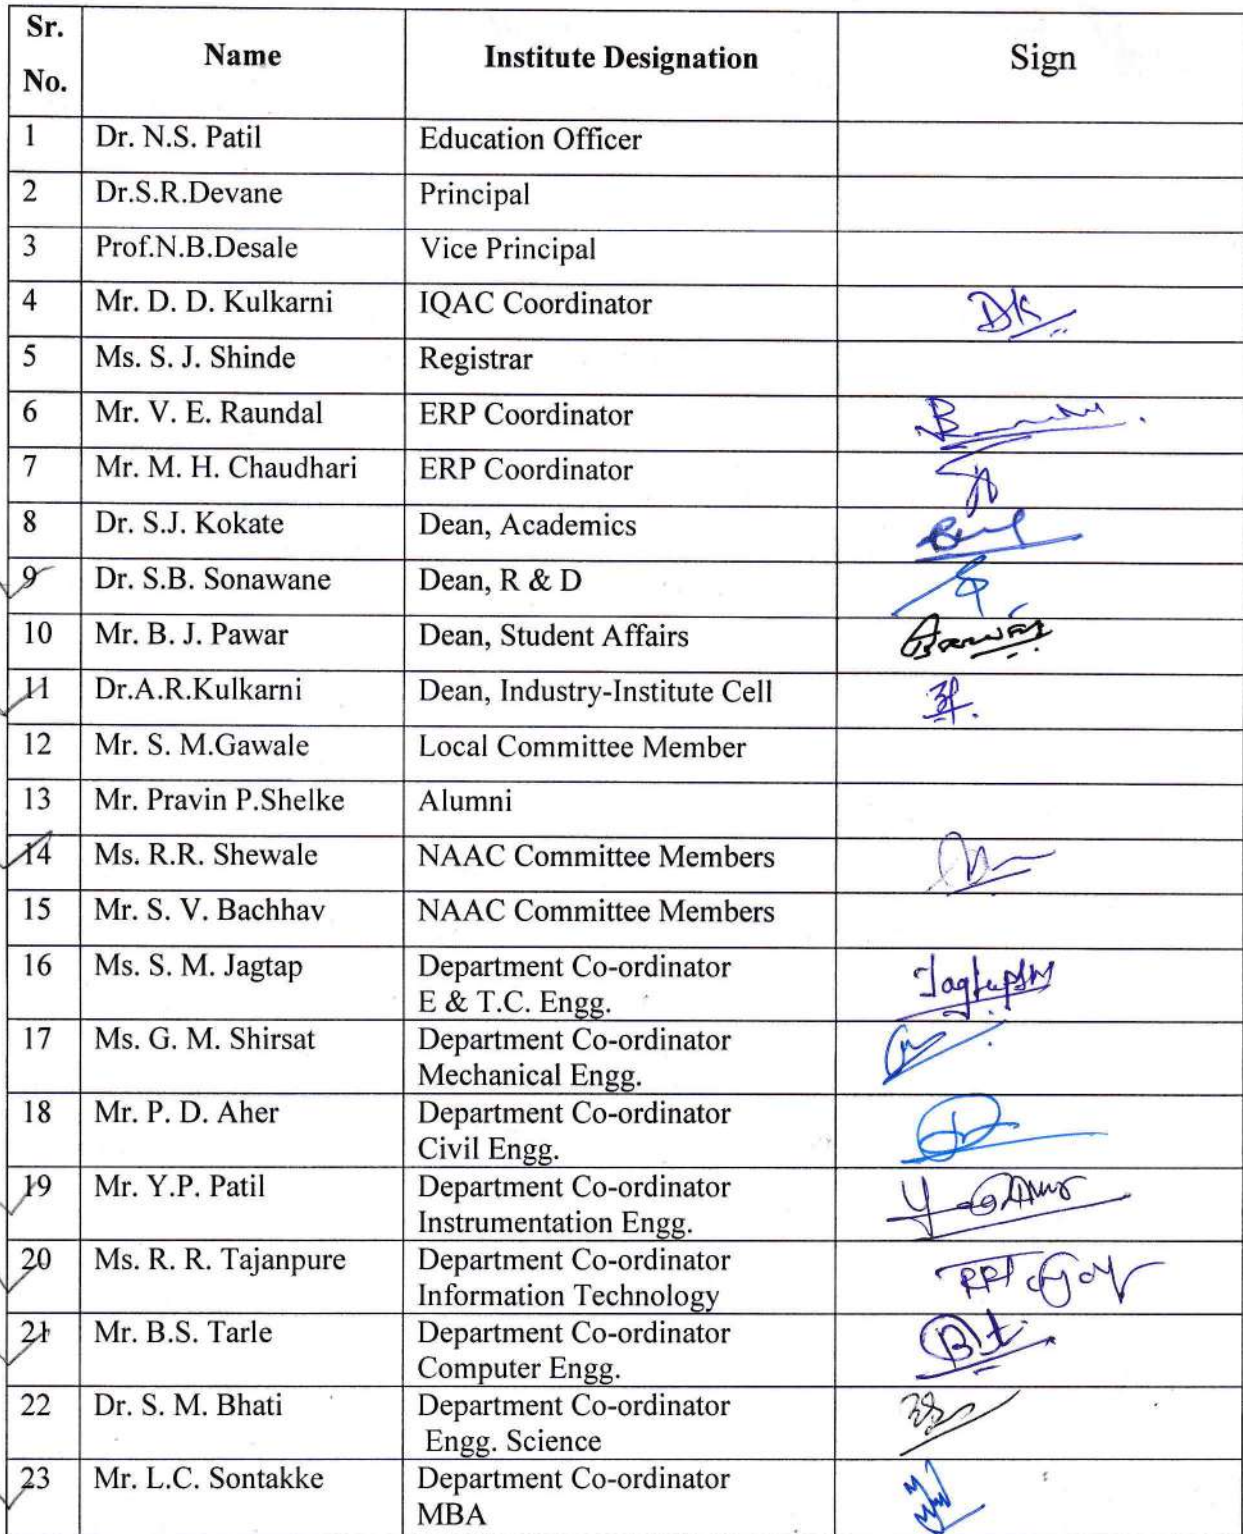 Sr.
No.
Name
Institute Designation
Sign
1 Dr. N.S. Patil Education Officer
2 Dr.S.R.Devane Principal
3 Prof.N.B.Desale Vice Principal
4 Mr. D. D. Kulkarni IQAC Coordinator DK
5 Ms. S. J. Shinde Registrar
6 Mr. V. E. Raundal ERP Coordinator
7 Mr. M. H. Chaudhari ERP Coordinator
8 Dr. S.J. Kokate Dean, Academics
9 Dr. S.B. Sonawane Dean, R & D
10 Mr. B. J. Pawar Dean, Student Affairs
11 Dr.A.R.Kulkarni Dean, Industry-Institute Cell
12 Mr. S. M.Gawale Local Committee Member
13 Mr. Pravin P.Shelke Alumni
14 Ms. R.R. Shewale NAAC Committee Members
15 Mr. S. V. Bachhav NAAC Committee Members
16 Ms. S. M. Jagtap Department Co-ordinator JagtapSM
E & T.C. Engg.
17 Ms. G. M. Shirsat Department Co-ordinator
Mechanical Engg.
18 Mr. P. D. Aher Department Co-ordinator
Civil Engg.
19 Mr. Y.P. Patil Department Co-ordinator
Instrumentation Engg.
20 Ms. R. R. Tajanpure Department Co-ordinator
Information Technology
21 Mr. B.S. Tarle Department Co-ordinator
Computer Engg.
22 Dr. S. M. Bhati Department Co-ordinator
Engg. Science
23 Mr. L.C. Sontakke Department Co-ordinator
MBA